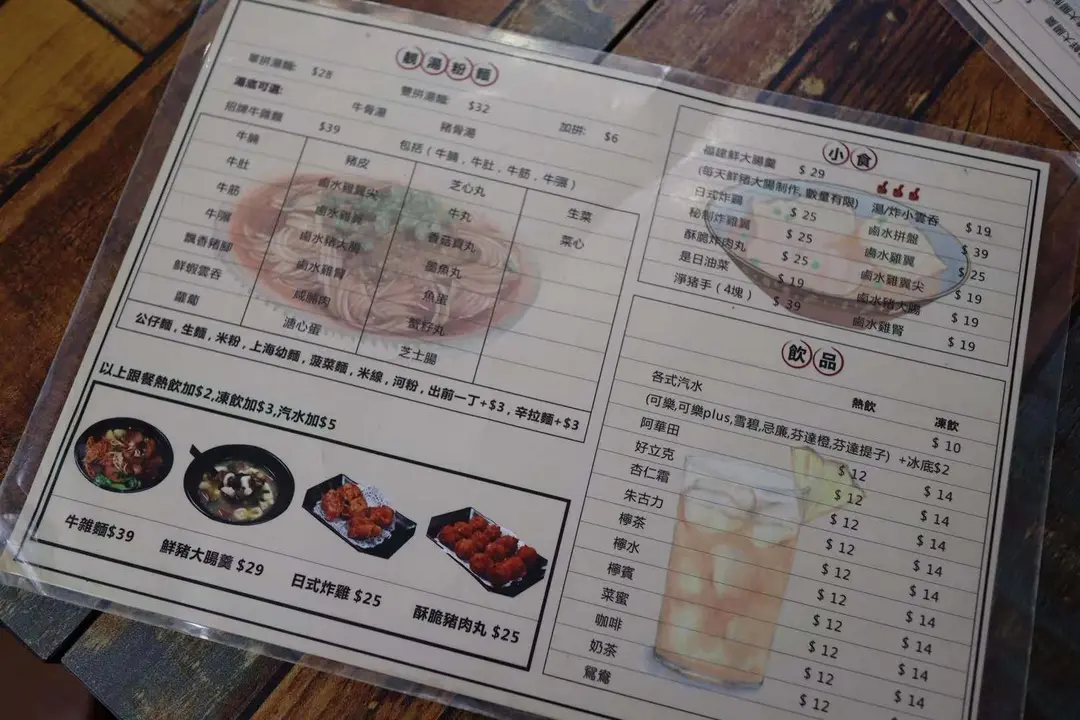 靚湯粉麵
單拼湯麵: $28 雙拼湯麵: $32 加拼: $6
湯底可選: 牛骨湯 豬骨湯
招牌牛雜麵 $39 包括 ( 牛腩 , 牛肚 , 牛筋 , 牛𦟌 )
牛腩 豬皮 芝心丸 生菜
牛肚 鹵水雞翼尖 牛丸 菜心
牛筋 鹵水雞翼 香菇貢丸
牛𦟌 鹵水豬大腸 墨魚丸
飄香豬腳 鹵水雞腎 魚蛋
鮮蝦雲吞 咸腩肉 蟹籽丸
蘿蔔 溏心蛋 芝士腸
公仔麵 , 生麵 , 米粉 , 上海幼麵 , 菠菜麵 , 米線 , 河粉 , 出前一丁+$3 , 辛拉麵+$3
以上跟餐熱飲加$2,凍飲加$3,汽水加$5
牛雜麵$39
鮮豬大腸羹 $29
日式炸雞 $25
酥脆豬肉丸 $25
小食
福建鮮大腸羹 $ 29
(每天鮮豬大腸制作, 數量有限)
日式炸雞 $ 25
秘制炸雞翼 $ 25
酥脆炸肉丸 $ 25
是日油菜 $ 19
淨豬手 ( 4塊 ) $ 39
湯/炸小雲吞 $ 19
鹵水拼盤 $ 39
鹵水雞翼 $ 25
鹵水雞翼尖 $ 19
鹵水豬大腸 $ 19
鹵水雞腎 $ 19
飲品
熱飲 凍飲
各式汽水 $ 10
(可樂,可樂plus,雪碧,忌廉,芬達橙,芬達提子) +冰底$2
阿華田 $ 12 $ 14
好立克 $ 12 $ 14
杏仁霜 $ 12 $ 14
朱古力 $ 12 $ 14
檸茶 $ 12 $ 14
檸水 $ 12 $ 14
檸賓 $ 12 $ 14
菜蜜 $ 12 $ 14
咖啡 $ 12 $ 14
奶茶
鴛鴦